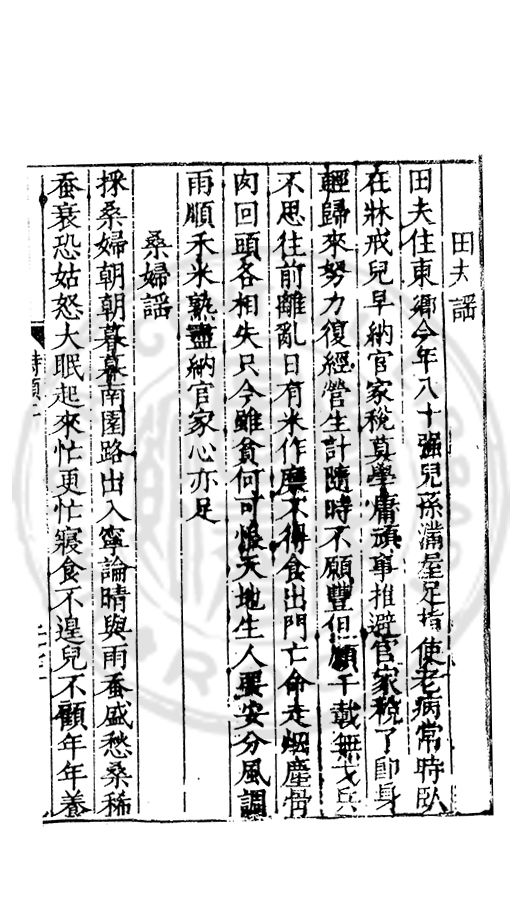 田夫謡
田夫住東鄉今年八十強兒孫滿屋足指使老病常時臥
在牀戒兒早納官家稅莫學庸頑事推避官家稅了即身
輕歸來努力復經營生計隨時不願豐但願千載無戈兵
不思往前離亂日有米作糜不得食出門亡命走烟塵骨
肉回頭各相失只今雖貧何可恨天地生人要安分風調
雨順禾米熟盡納官家心亦足
桑婦謡
採桑婦朝朝暮暮南園路出入寧論晴與雨蚕盛愁桑稀
蚕衰恐姑怒大眠起來忙更忙寢食不遑兒不顧年年養